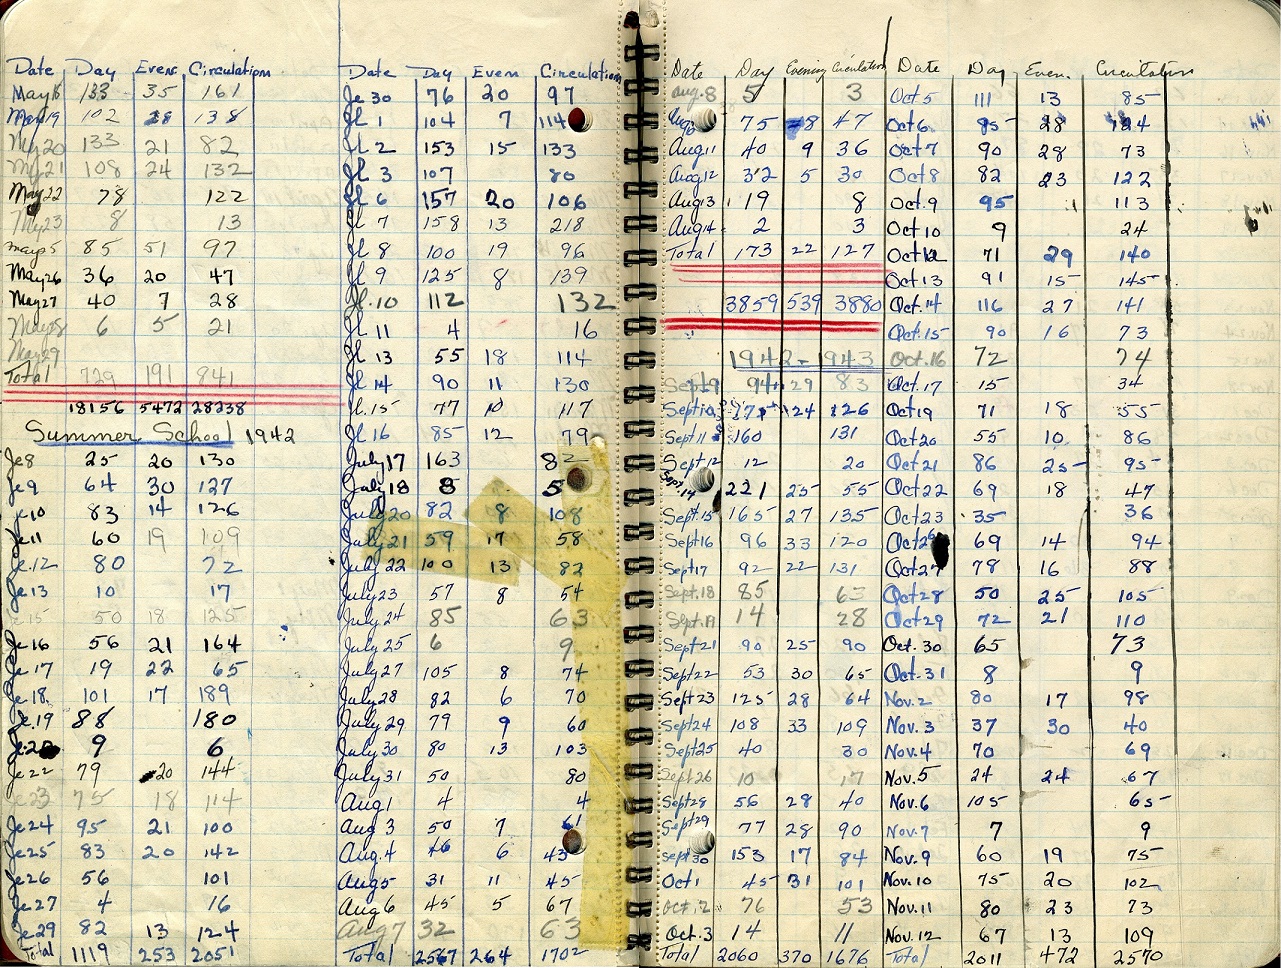 Date Day Even Circulation
May 18 133 35 161
May 19 102 28 138
My 20 133 21 82
My 21 108 24 132
May 22 78 122
My 23 8 13
85 51 97
May 26 36 20 47
May 27 40 7 28
6 5 21
May 29
Total 729 191 841
18156 5472 28238
Summer School 1942
Je 8 25 20 130
Je 9 64 30 127
Je 10 83 14 126
Je 11 60 19 109
Je. 12 80 72
Je 13 10 17
Je 15 50 18 125
Je 16 56 21 164
Je 17 19 22 65
Je 18 101 17 189
Je. 19 88 180
Je 20 9 6
Je 22 79 20 144
Je 23 75 18 114
Je 24 95 21 100
Je 25 83 20 142
Je 26 56 101
Je 27 4 16
Je 29 82 13 124
Total 1119 253 2051
Date Day Even Circulation
Je 30 76 20 97
Jl 1 104 7 114
Jl 2 153 15 133
Jl 3 107 80
Jl 6 157 20 106
Jl 7 158 13 218
Jl 8 100 19 96
Jl 9 125 8 139
Jl. 10 112 132
Jl 11 4 16
Jl 13 55 18 114
Jl 14 90 11 130
Jl. 15 77 10 117
Jl 16 85 12 79
July 17 163 82
July 18 8 5
July 20 82 8 108
July 21 59 17 58
July 22 100 13 82
July 23 57 8 54
July 24 85 63
July 25 6 9
July 27 105 8 74
July 28 82 6 70
July 29 79 9 60
July 30 80 13 103
July 31 50 80
Aug 1 4 4
Aug 3 50 7 61
Aug. 4 46 6 43
Aug 5 31 11 45
Aug 6 45 5 67
Aug 7 32 63
Total 2567 264 1702
Date Day Evening Circulation
Aug. 8 5 3
Aug 75 8 47
Aug 11 40 9 36
Aug 12 32 5 30
Aug 13 19 8
Aug 14 2 3
Total 173 22 127
3859 539 3880
1942-1943
Sept 9 94 29 83
Sept 10 175 24 126
Sept 11 160 131
Sept 12 12 20
Sept. 14 221 25 55
Sept. 15 165 27 135
Sept 16 96 33 120
Sept 17 92 22 131
Sept. 18 85 63
Sept. 19 14 28
Sept 21 90 25 90
Sept 22 53 30 65
Sept 23 125 28 64
Sept 24 108 33 109
Sept 25 40 30
Sept 26 10 17
Sept 28 56 28 40
Sept 29 77 28 90
Sept 30 153 17 84
Oct 1 45 31 101
Oct. 2 76 53
Oct. 3 14 11
Total 2060 370 1676
Date Day Even. Circulation
Oct 5 111 13 85
Oct 6 85 28 124
Oct 7 90 28 73
Oct 8 82 23 122
Oct. 9 95 113
Oct 10 9 24
Oct 12 71 29 140
Oct 13 91 15 145
Oct. 14 116 27 141
Oct. 15 90 16 73
Oct. 16 72 74
Oct. 17 15 34
Oct 19 71 18 55
Oct 20 55 10 86
Oct 21 86 25 95
Oct 22 69 18 47
Oct 23 35 36
Oct 26 69 14 94
Oct 27 78 16 88
Oct 28 50 25 105
Oct 29 72 21 110
Oct. 30 65 73
Oct. 31 8 9
Nov. 2 80 17 98
Nov. 3 37 30 40
Nov. 4 70 69
Nov. 5 24 24 67
Nov. 6 105 65
Nov. 7 7 9
Nov. 9 60 19 75
Nov. 10 75 20 102
Nov. 11 80 23 73
Nov. 12 67 13 109
Total 2011 472 2570